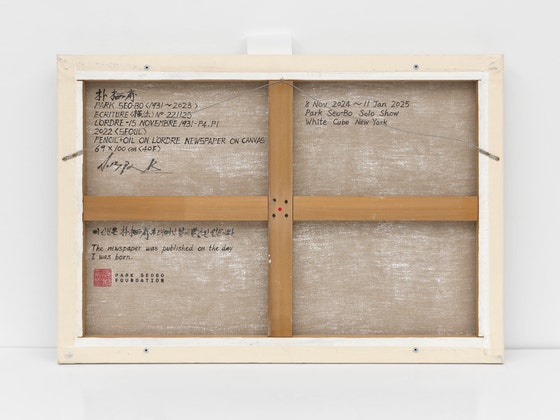 朴栖甫
PARK SEO-BO (1931~2023)
ECRITURE (描法) Nº 221125
L'ORDRE-15. NOVEMBRE 1931-P4. P1
2022 (SEOUL)
PENCIL+OIL ON L'ORDRE NEWSPAPER ON CANVAS
69 x 100 cm (40F)
8 Nov 2024 ~ 11 Jan 2025
Park Seo-Bo Solo Show
White Cube New York
이 신문은 朴栖甫
The newspaper was published on the day
I was born.
PARK SEOBO
FOUNDATION